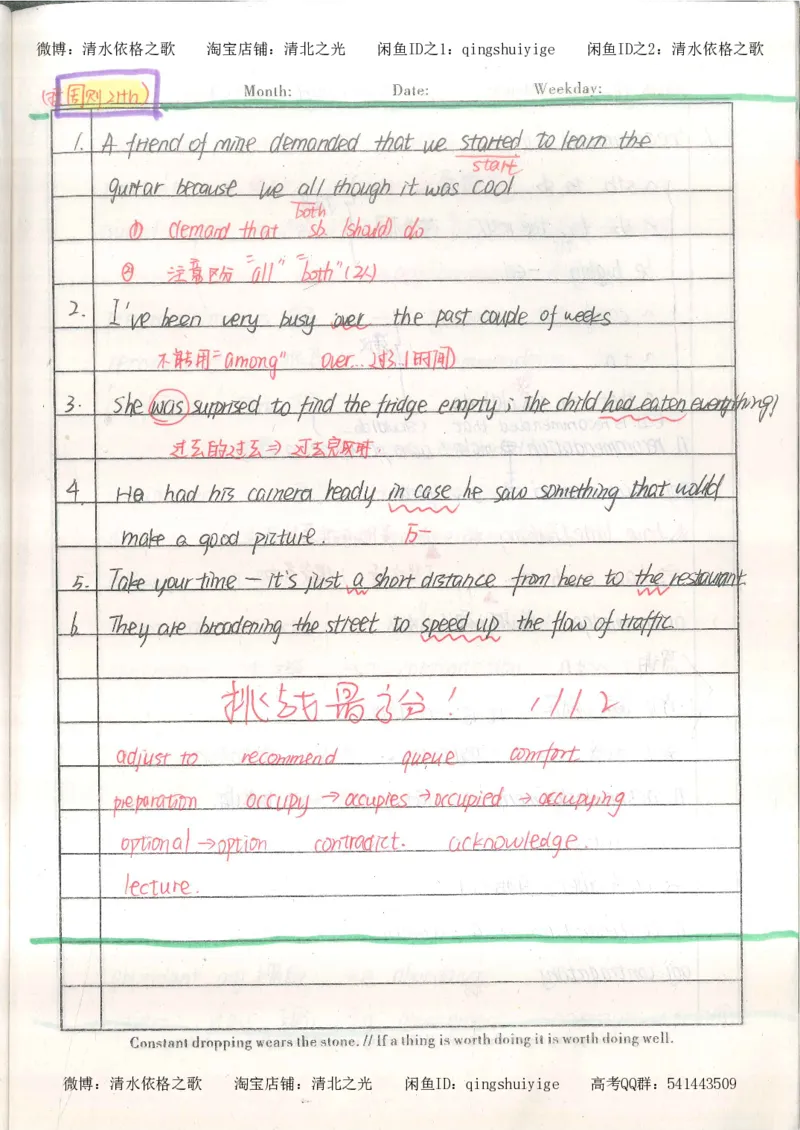 微博：清水依格之歌 淘宝店铺：清北之光 闲鱼ID之1：qingshuiyige 闲鱼ID之2：清水依格之歌
周测 21th)
Month: Date: Weekday:
1. A friend of mine demanded that we started to learn the
start
guitar because we all though it was cool
both
① demand that sb. (should) do
② 注意区分 "all" "both" (2人)
2. I've been very busy over the past couple of weeks
不能用"among" over... 过 (时间)
3. She was surprised to find the fridge empty; The child had eaten everything!
过去的过去⇒过去完成时.
4. He had his camera ready in case he saw something that would
make a good picture. 万一
5. Take your time — it's just a short distance from here to the restaurant
6 They are broadening the street to speed up the flow of traffic.
挑战最高分! 1112
adjust to recommend queue comfort
preparation occupy → occupies → occupied → occupying
optional → option contradict. acknowledge.
lecture.
Constant dropping wears the stone. // If a thing is worth doing it is worth doing well.
微博：清水依格之歌 淘宝店铺：清北之光 闲鱼ID：qingshuiyige 高考QQ群：541443509